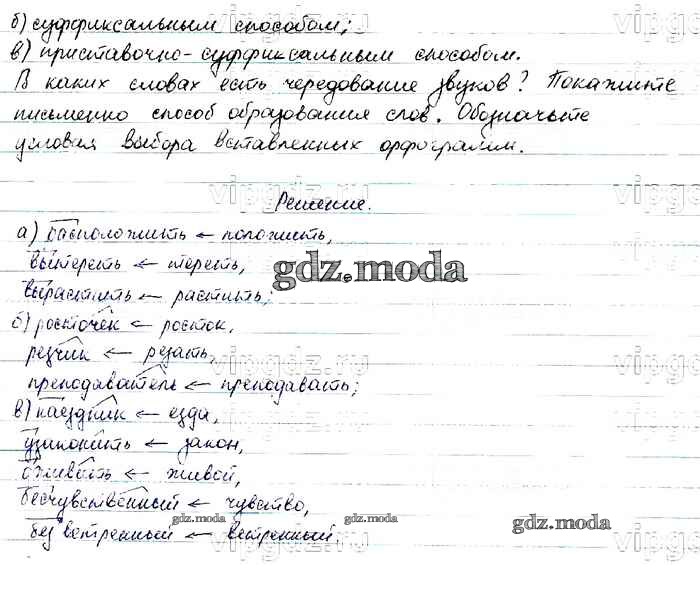 б) суффиксальным способом;
в) приставочно-суффиксальным способом.
В каких словах есть чередование звуков? Покажите
письменно способ образования слов. Обозначьте
условия выбора вставленных орфограмм.
Решение.
а) расположить ← положить,
вытереть ← тереть,
вырастить ← растить;
gdz.moda
б) росточек ← росток,
резчик ← резать,
преподаватель ← преподавать;
в) наездник ← езда,
узаконить ← закон,
оживать ← живой,
бесчувственный ← чувство,
gdz.moda gdz.moda gdz.moda
безветренный ← ветренный.